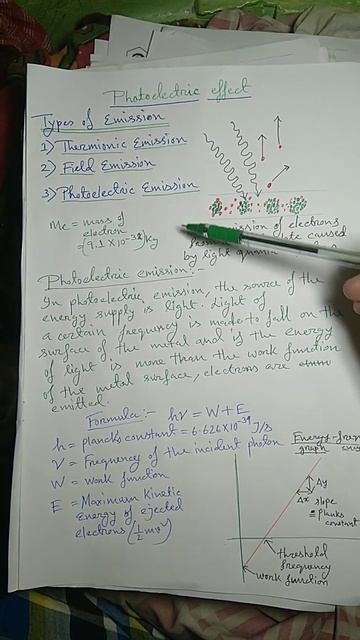 Photoelectric effect
Types of Emission
1) Thermionic Emission
2) Field Emission
3) Photoelectric Emission
Me = mass of
electron
= (9.1 x 10-31) Kg
emission of electrons
from plate caused
by light quanta
Photoelectric emission:-
In photoelectric emission, the source of the
energy supply is light. Light of
a certain frequency is made to fall on the
surface of the metal and if the energy
of light is more than the work function
of the metal surface, electrons are
emitted.
Formula:- hν = W + E
h = plancks constant = 6.626x10-34 J/s
ν = Frequency of the incident photon
W = work function
E = Maximum Kinetic
Energy of ejected
electrons (1/2 mv²)
graph
Δy
Δx
slope
= planks
constant
threshold
frequency
work function